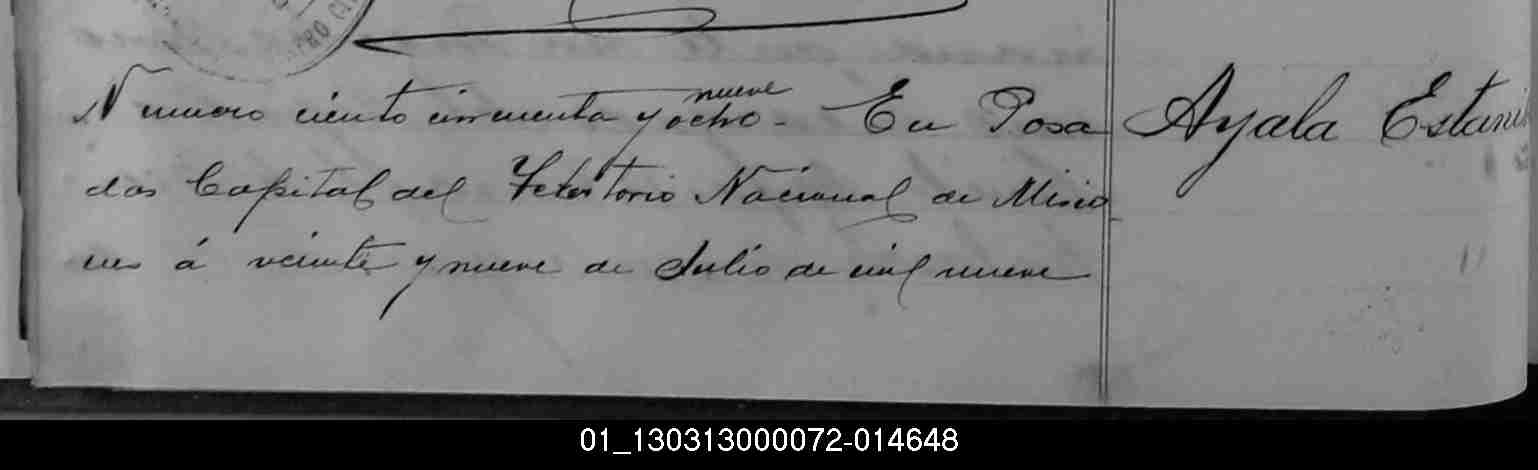 RO CI
nueve
Numero ciento cincuenta y ocho - En Posa
das Capital del Teritorio Nacional de Misio
nes á veinte y nueve de Julio de mil nueve
Ayala Estani
01_130313000072-014648